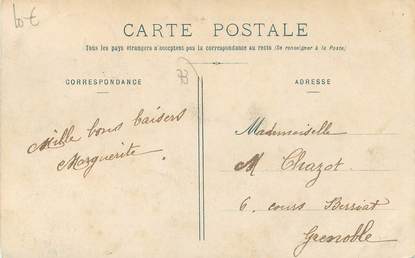 10€
CARTE POSTALE
Tous les pays étrangers n'acceptent pas la correspondance au recto (Se renseigner à la Poste)
CORRESPONDANCE
ADRESSE
Mille bons baisers
Marguerite
Mademoiselle
M Chazot
6, cours Berriat
Grenoble